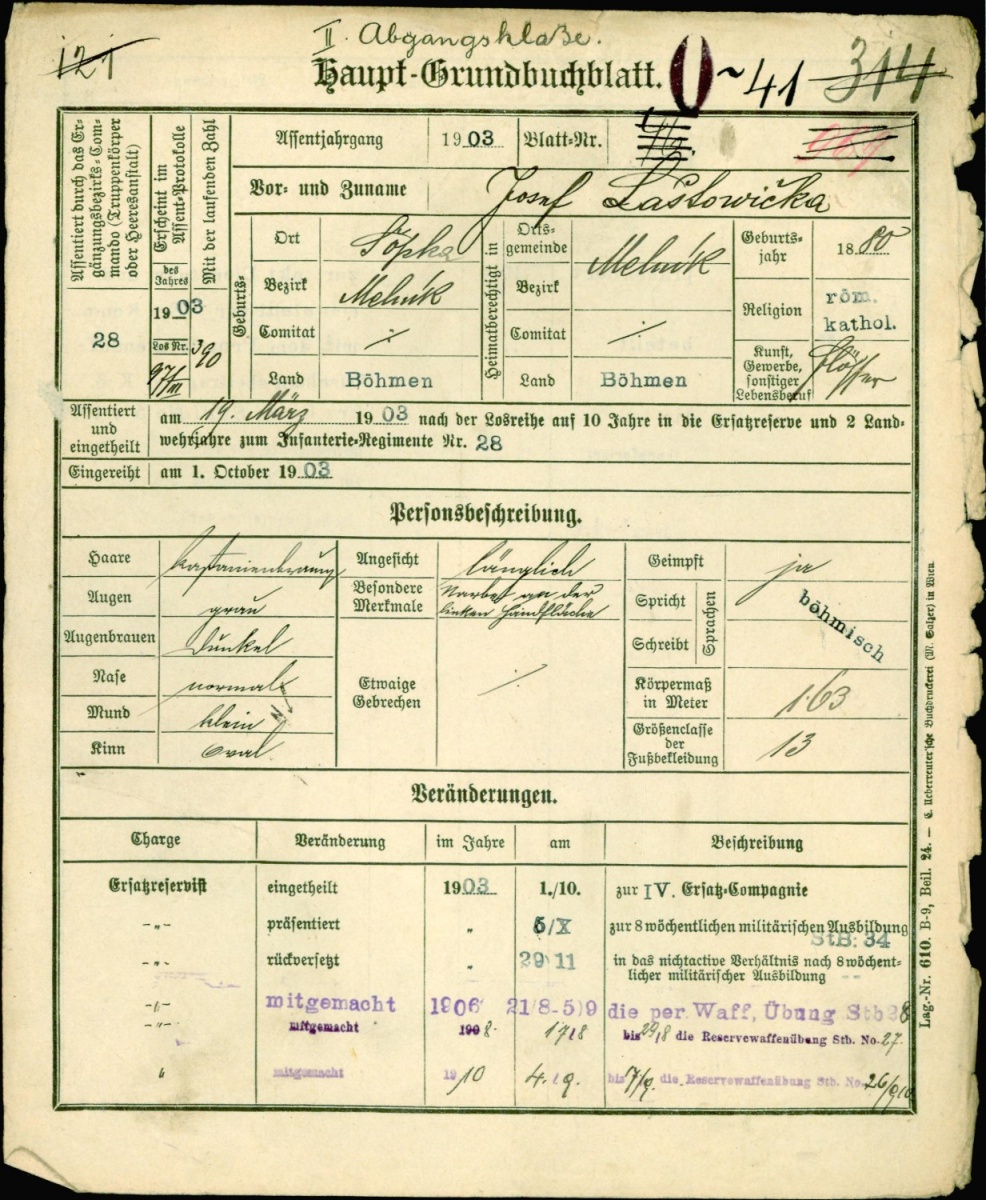 II. Abgangsklaße.
121
Haupt-Grundbuchblatt.
0~41
314
969
Assentiert durch das Ergänzungsbezirks-Commando (Truppenkörper oder Heeresanstalt)
28
Erscheint im Assent-Protokolle
des Jahres
1903
Los Nr.
97/III
Mit der laufenden Zahl
390
Assentjahrgang
1903
Blatt-Nr.
Vor- und Zuname
Josef Lastowička
Geburts-
Ort
Šopka
Bezirk
Melnik
Comitat
·/·
Land
Böhmen
Heimatberechtigt in
Orts-
gemeinde
Melnik
Bezirk
Comitat
·/·
Land
Böhmen
Geburts-
jahr
1880
Religion
röm.
kathol.
Kunst,
Gewerbe,
sonstiger
Lebensberuf
Flösser
Assentiert
und
eingetheilt
am 19. März 1903 nach der Losreihe auf 10 Jahre in die Ersatzreserve und 2 Land-
wehrjahre zum Infanterie-Regimente Nr. 28
Eingereiht
am 1. October 1903
Personsbeschreibung.
Haare
kastanienbraun
Augen
grau
Augenbrauen
dunkel
Nase
normal
Mund
klein
Kinn
oval
Angesicht
länglich
Besondere
Merkmale
Narbe an der
linken Handfläche
Etwaige
Gebrechen
·/·
Geimpft
ja
Spricht
Schreibt
Sprachen
böhmisch
Körpermaß
in Meter
1·63
Größenclasse
der
Fußbekleidung
13
Veränderungen.
Charge Veränderung im Jahre am Beschreibung
Ersatzreservist eingetheilt 1903 1./10. zur IV. Ersatz-Compagnie
-„- präsentiert „ 5/X zur 8 wöchentlichen militärischen Ausbildung
StB: 34
-„- rückversetzt „ 29 11 in das nichtactive Verhältnis nach 8 wöchent-
licher militärischer Ausbildung
-„- mitgemacht 1906 21/8-5)9 die per. Waff, Übung Stb 28
-„- mitgemacht 1908. 17/8 bis 29/8 die Reservewaffenübung Stb. No. 27.
„ mitgemacht 1910 4./9. bis 17/9. die Reservewaffenübung Stb. No. 26/910
Lag.-Nr. 610. B-9, Beil. 24. — C. Ueberreuter'sche Buchdruckerei (M. Salzer) in Wien.